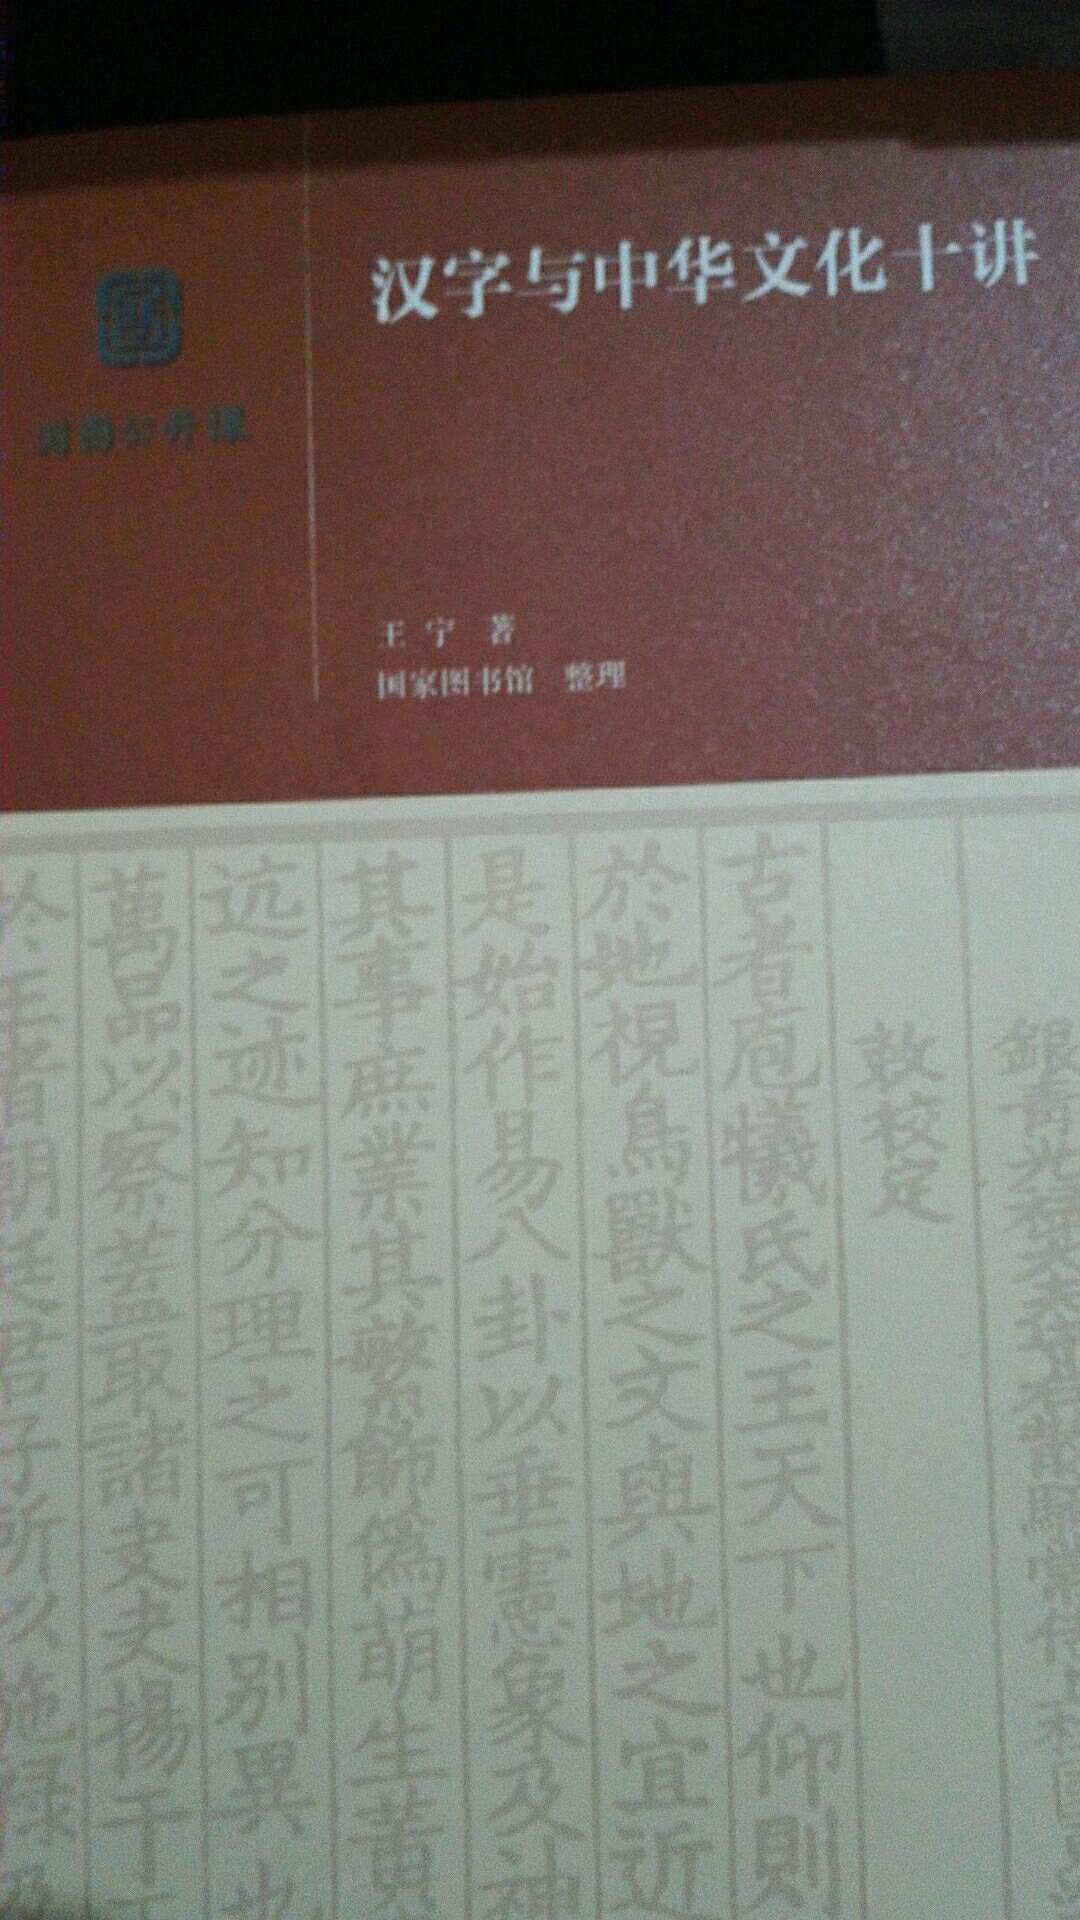 汉字与中华文化十讲
国图公开课
王宁 著
国家图书馆 整理
敕校定
古者庖犧氏之王天下也仰則
於地視鳥獸之文與地之宜近
是始作易八卦以垂憲象及神
其事庶業其繁飾僞萌生黄
迒之迹知分理之可相別異也
萬品以察蓋取諸夬夬揚于